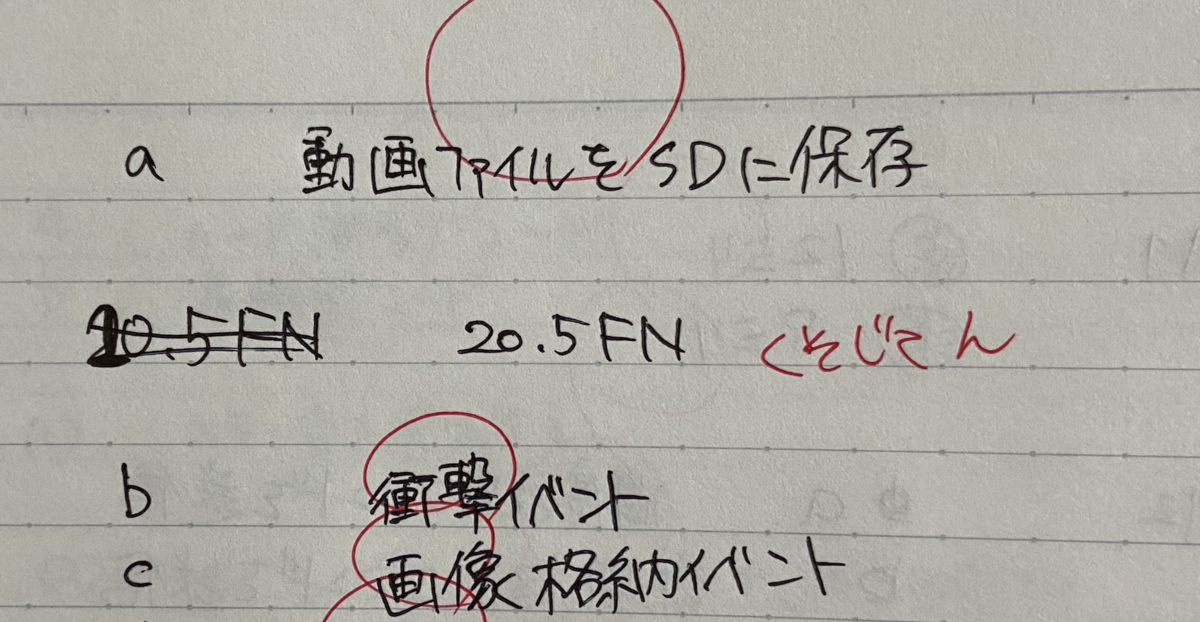 a 動画ファイルをSDに保存
20.5FN 20.5FN くそじてん
b 衝撃イベント
c 画像格納イベント